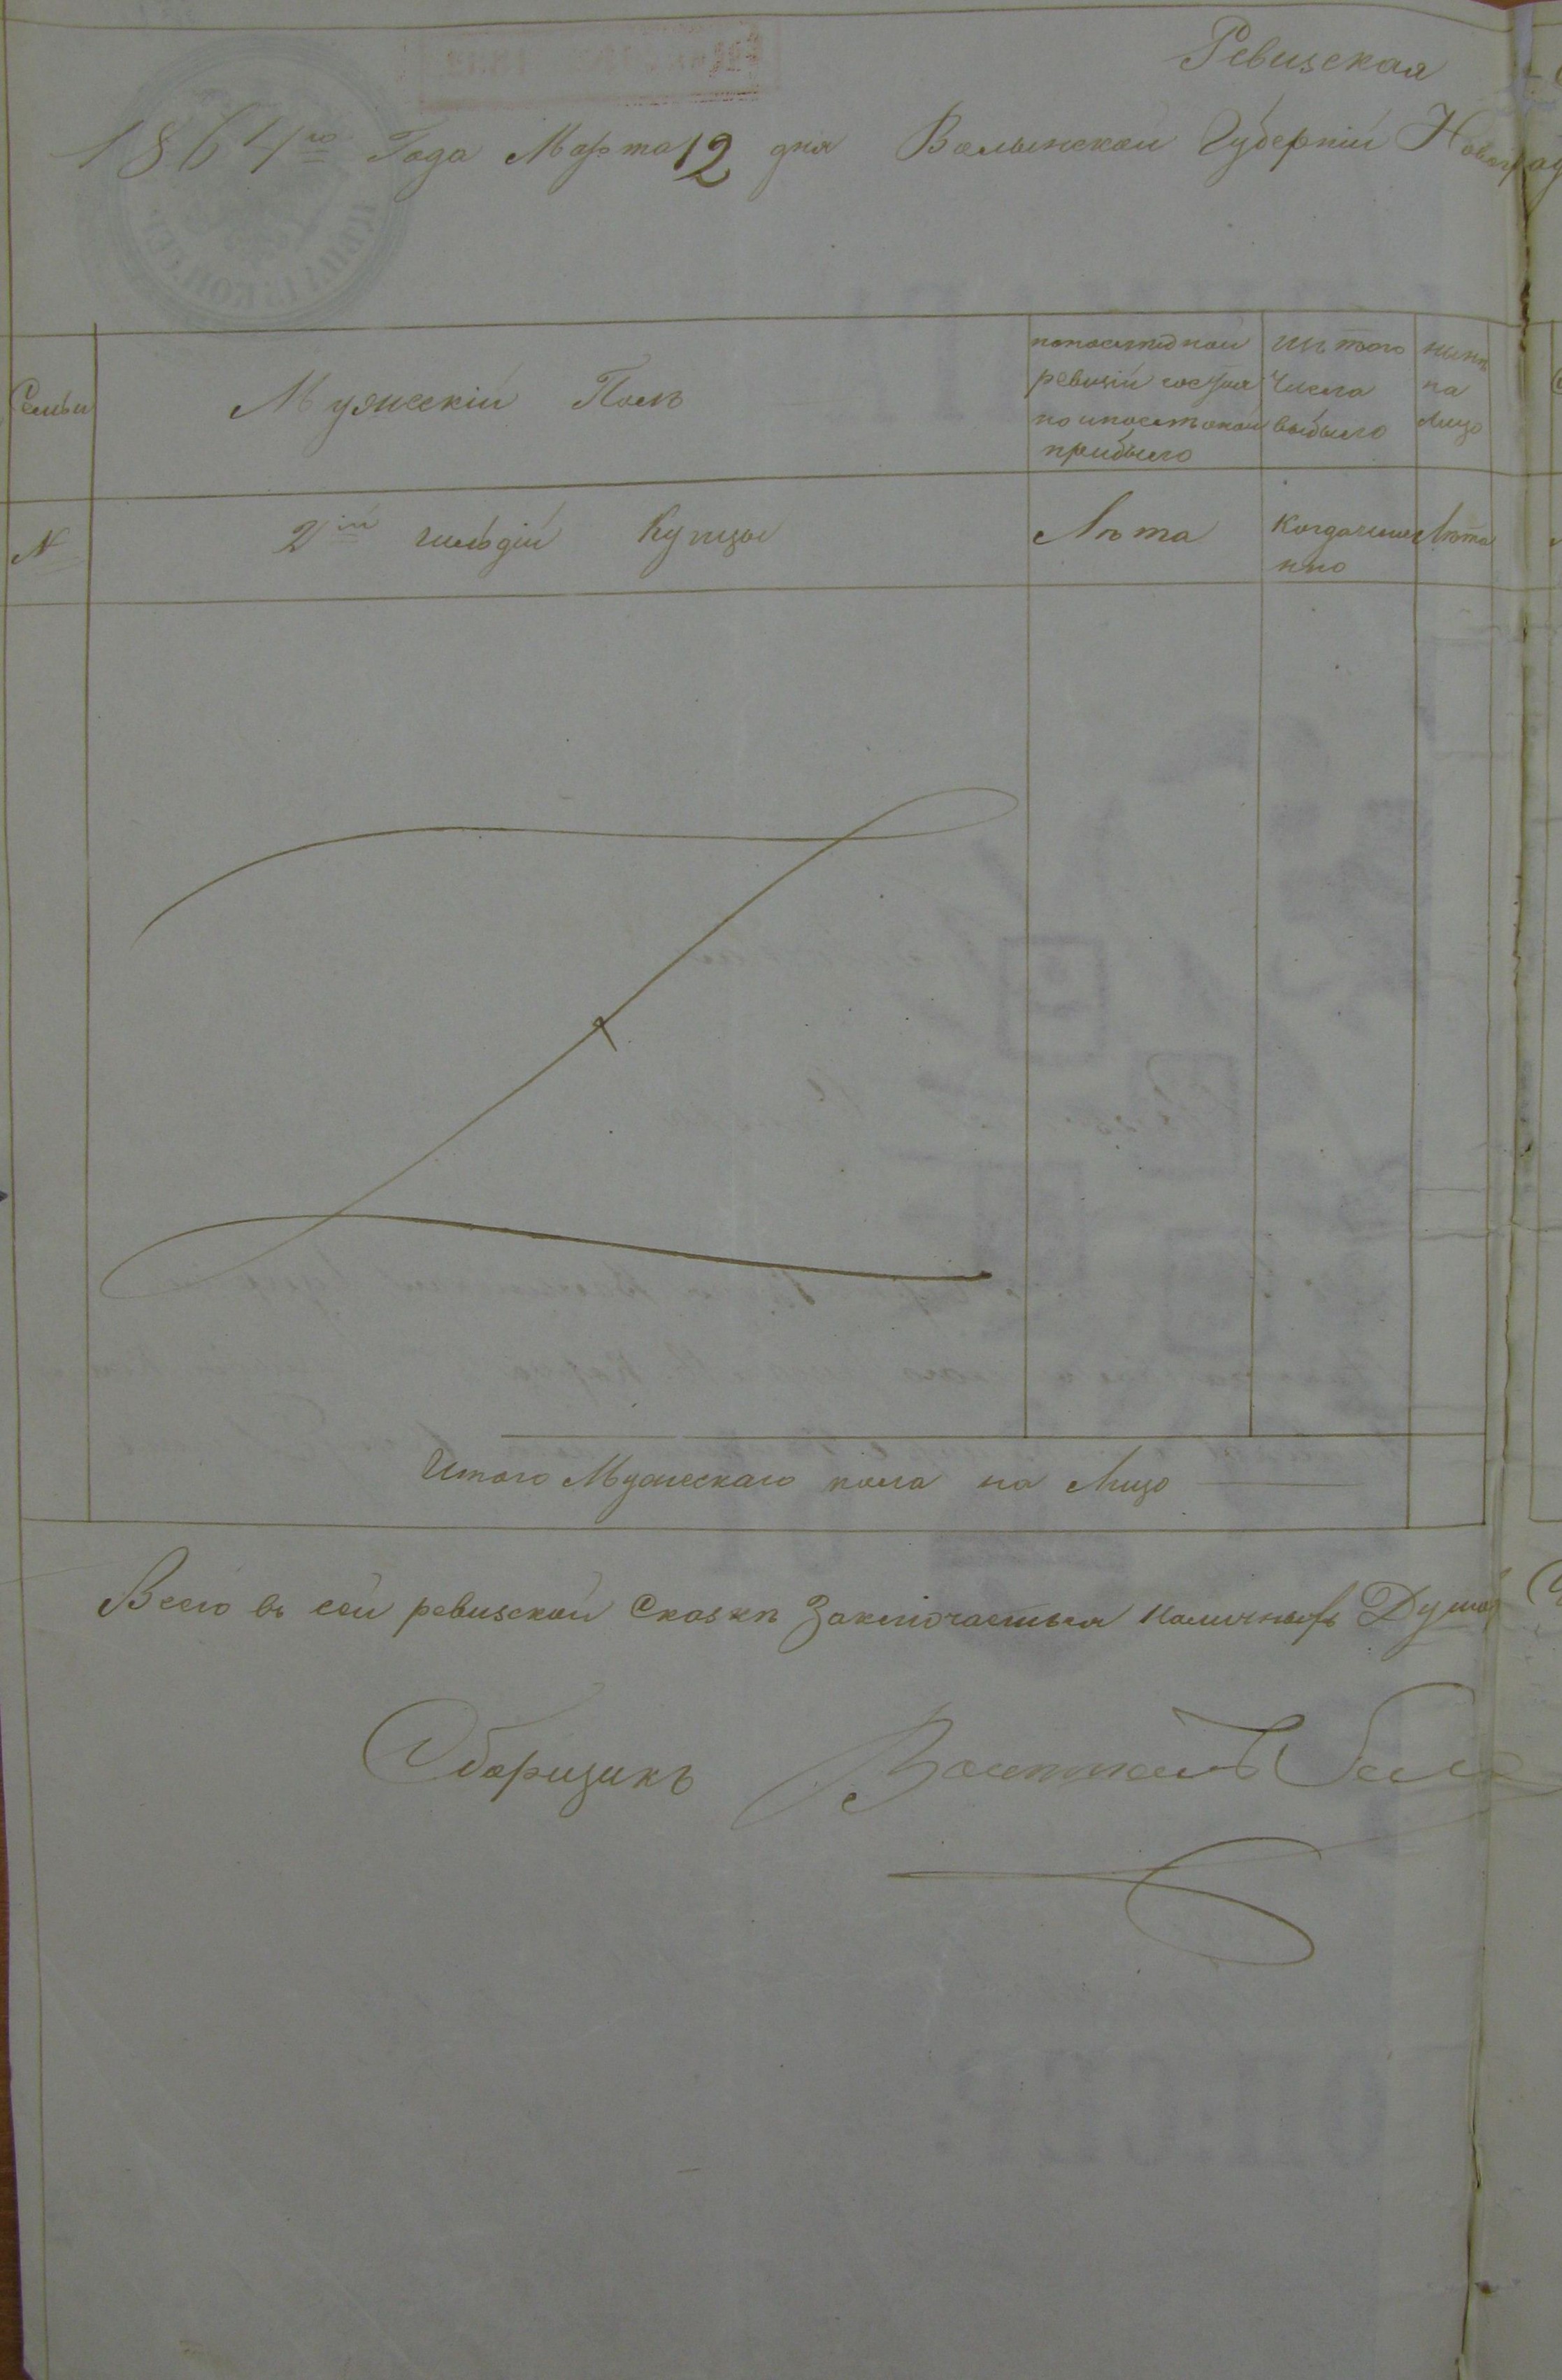 Ревизская
1864го Года Марта 12 дня Волынской Губерніи Новоград
Семьи
Мужескій Полъ
по последной
ревизіи состоял
но и после оной
прибыло
изъ того
Числа
выбыло
нынѣ
на
Лицо
№
2ій гильдіи Купцы
Лѣта
Когда именно
Лѣта
Итого Мужескаго пола на Лицо
Всего въ сей ревизской Сказкѣ Заключается наличныхъ Душъ
Сборщикъ